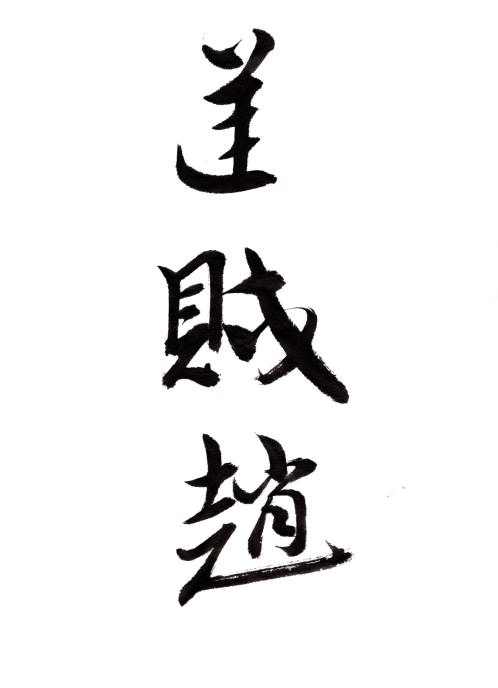 逆
賊
趙